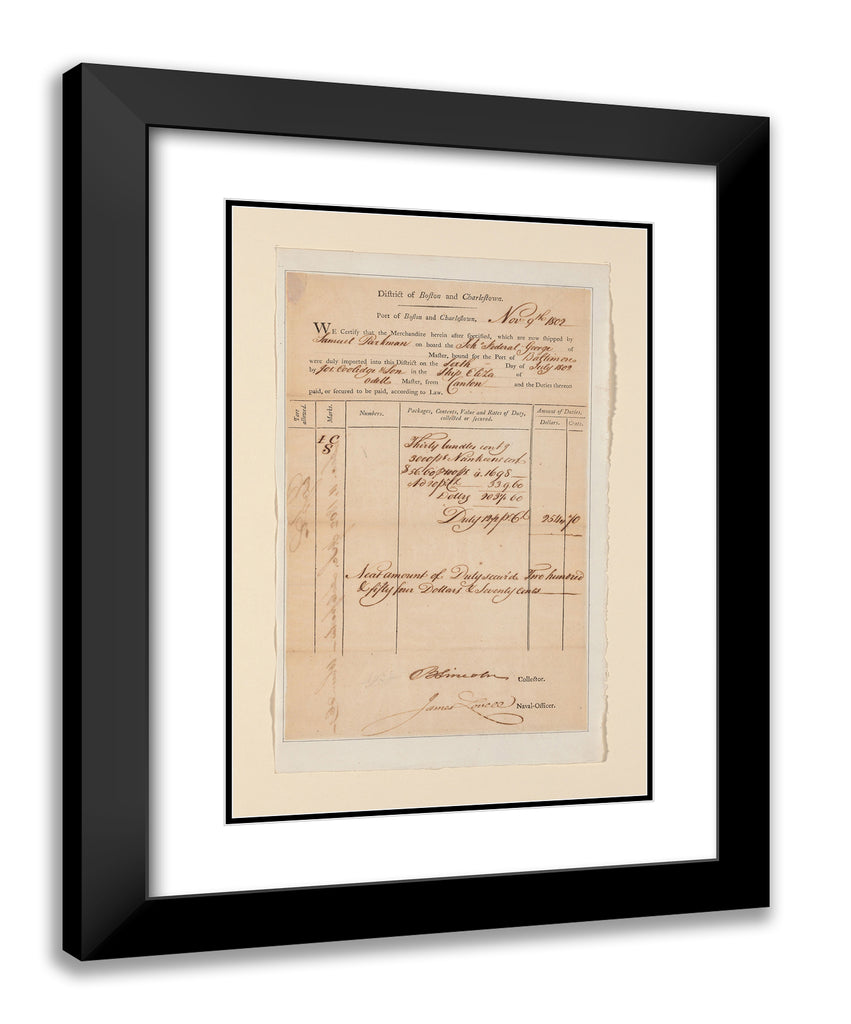 Diſtrict of Boſton and Charleſtown.
Port of Boſton and Charleſtown, Nov. 9th 1802
WE Certify that the Merchandize herein after ſpecified, which are now ſhipped by
Samuel Parkman on board the Sch Federal George of
Maſter, bound for the Port of Baltimore
were duly imported into this Diſtrict on the Sixth Day of July 1802
by Jos. Coolidge & Son in the Ship Eliza of
Odell Maſter, from Canton and the Duties thereon
paid, or ſecured to be paid, according to Law.
Tare allowed. Marks. Numbers. Packages, Contents, Value and Rates of Duty, collected or ſecured. Amount of Duties.
Dollars. Cents.
I C
S
Thirty bundles contg
3000 ps Nankeens cost
1698
Ad 20 pCt 339.60
Dollars 2037.60
Duty 12½ pCt 254 70
Neat amount of Duty secur'd Two hundred
& fifty four Dollars & Seventy cents
B Lincoln Collector.
James Lovell Naval-Officer.